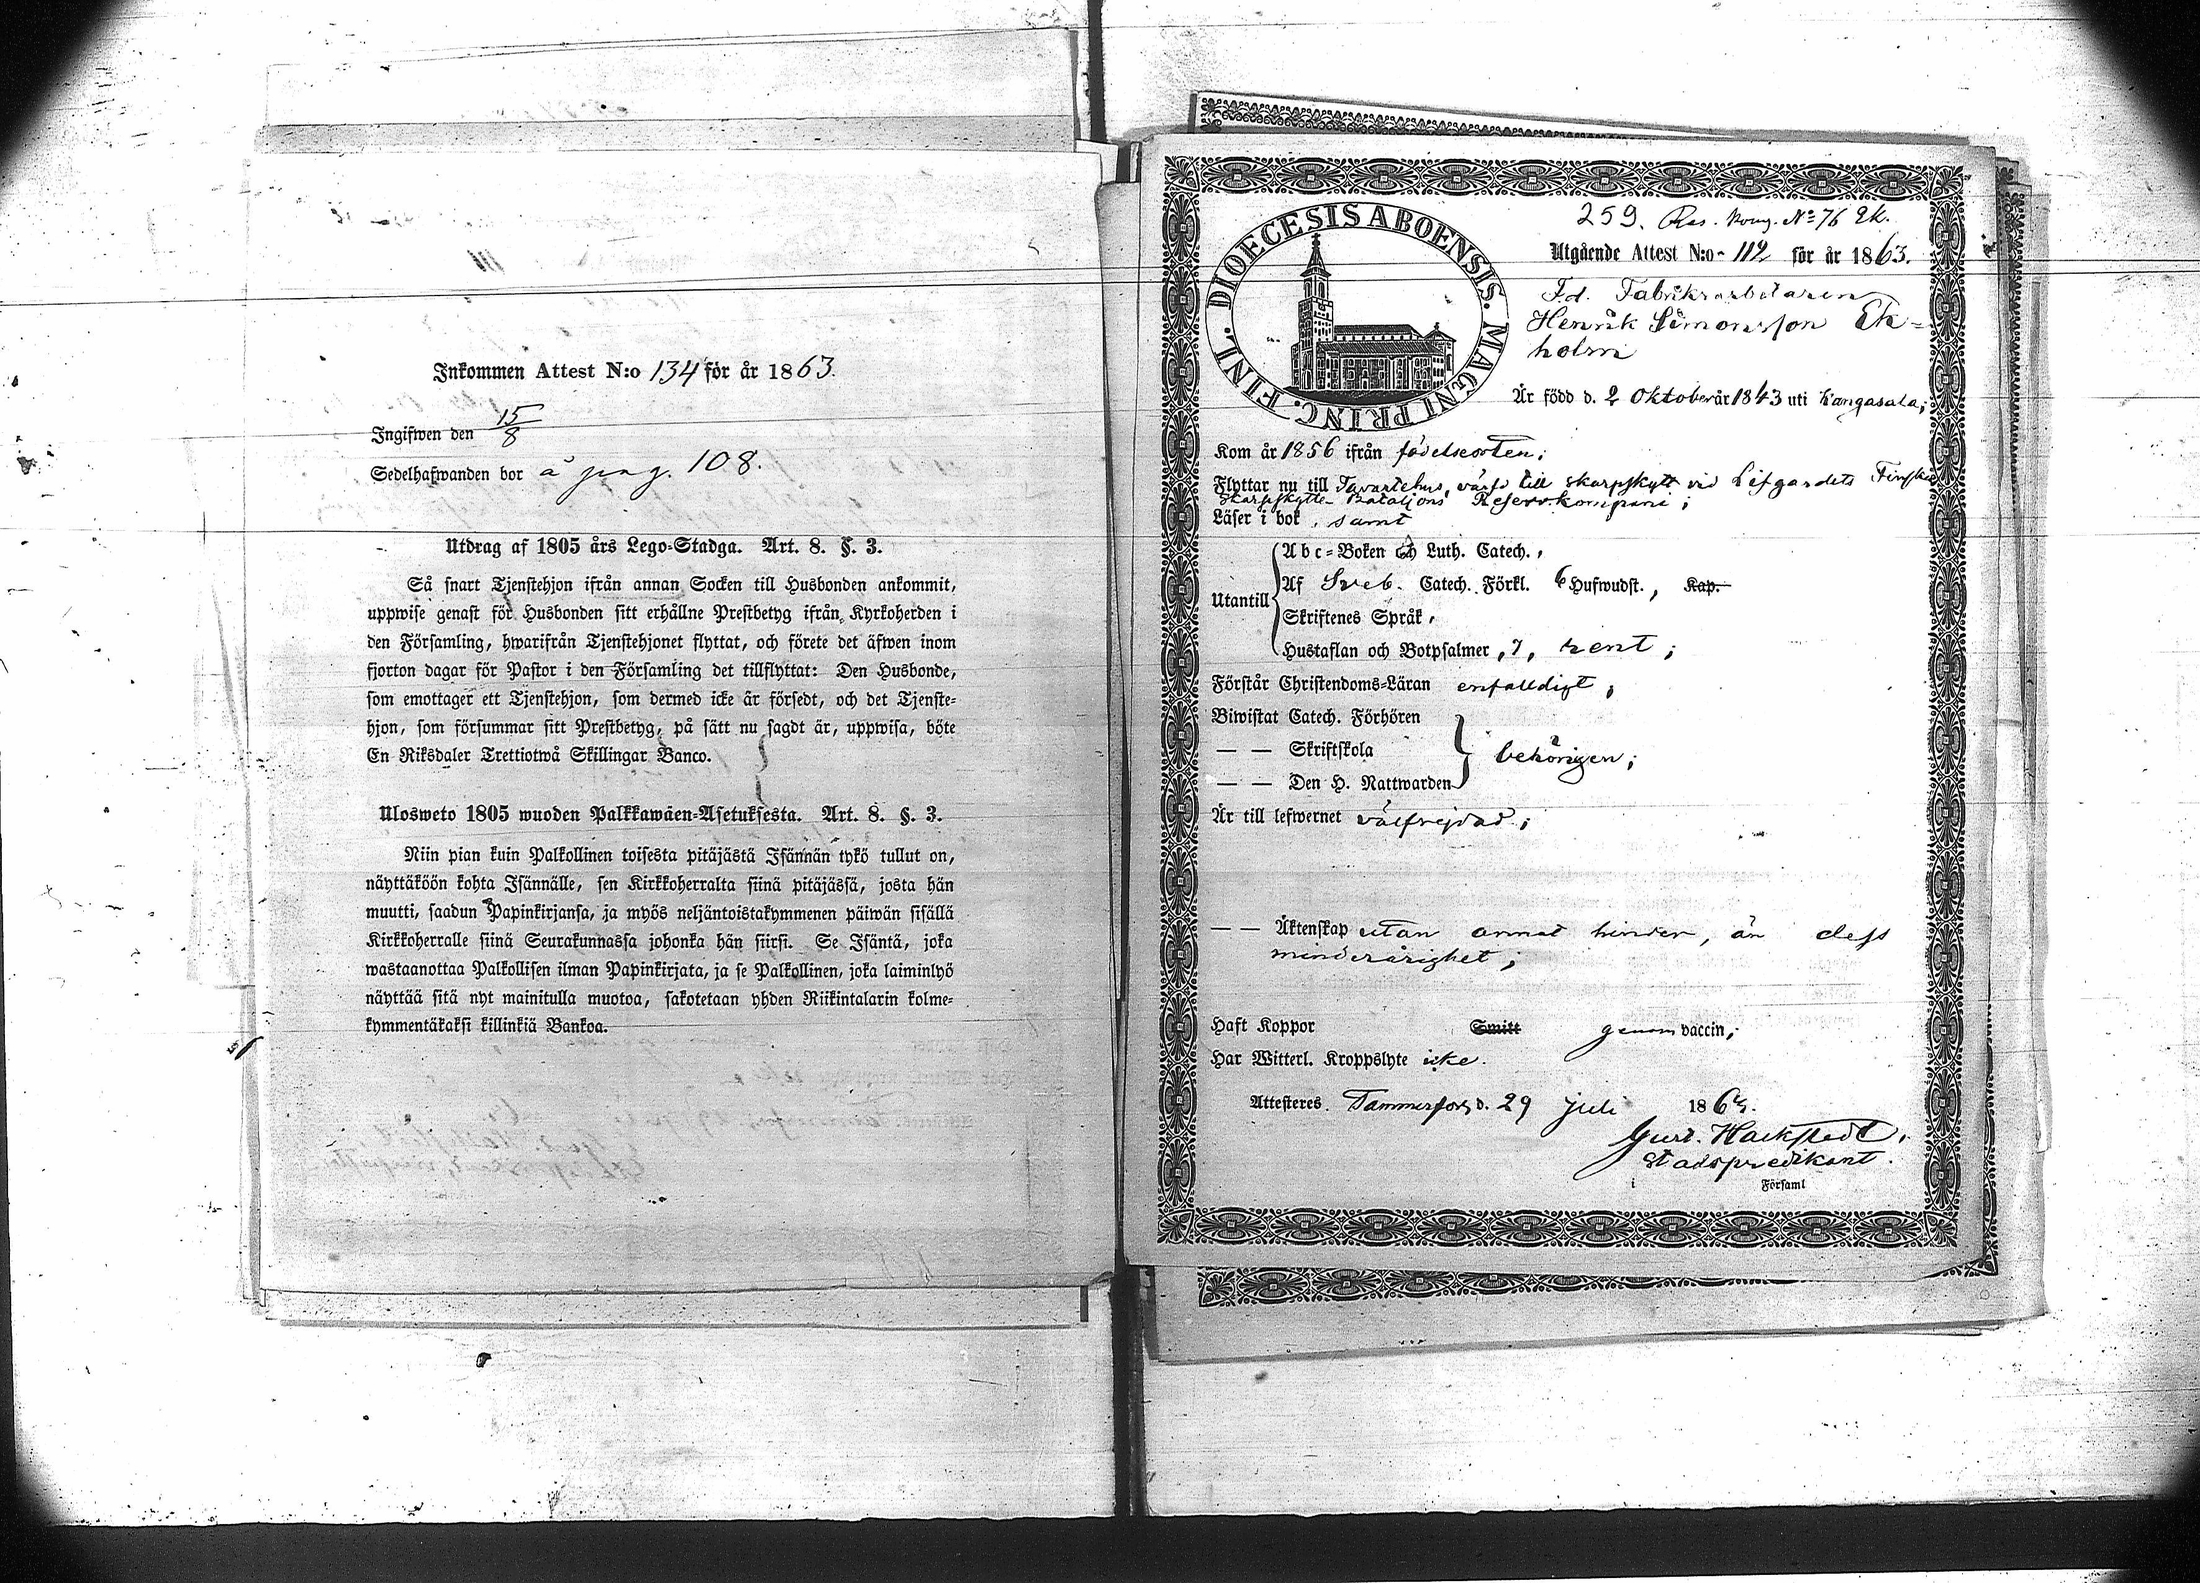 Inkommen Attest N:o 134 för år 1863.
Ingifwen den 15/8
Sedelhafwanden bor å pag. 108.
Utdrag af 1805 års Lego-Stadga. Art. 8. §. 3.
Så snart Tjenstehjon ifrån annan Socken till Husbonden ankommit,
uppwise genast för Husbonden sitt erhållne Prestbetyg ifrån Kyrkoherden i
den Församling, hwarifrån Tjenstehjonet flyttat, och förete det äfwen inom
fjorton dagar för Pastor i den Församling det tillflyttat: Den Husbonde,
som emottager ett Tjenstehjon, som dermed icke är försedt, och det Tjenste-
hjon, som försummar sitt Prestbetyg, på sätt nu sagdt är, uppwisa, böte
En Riksdaler Trettiotwå Skillingar Banco.
Ulosweto 1805 wuoden Palkkawäen-Asetuksesta. Art. 8. §. 3.
Niin pian kuin Palkollinen toisesta pitäjästä Isännän tykö tullut on,
näyttäköön kohta Isännälle, sen Kirkkoherralta siinä pitäjässä, josta hän
muutti, saadun Papinkirjansa, ja myös neljäntoistakymmenen päiwän sisällä
Kirkkoherralle siinä Seurakunnassa johonka hän siirsi. Se Isäntä, joka
wastaanottaa Palkollisen ilman Papinkirjata, ja se Palkollinen, joka laiminlyö
näyttää sitä nyt mainitulla muotoa, sakotetaan yhden Riikintalarin kolme-
kymmentäkaksi killinkiä Bankoa.
DIOECESIS ABOENSIS. MAGNI PRINC. FINL.
259. Res. Komp. No 76 Ek.
Utgående Attest N:o 112 för år 1863.
Fd. Fabriksarbetaren
Henrik Simonsson Ek-
holm
Är född d. 2 Oktober år 1843 uti Kangasala;
Kom år 1856 ifrån födelseorten;
Flyttar nu till Tavastehus, värfd till skarpskytt vid Lifgardets Finska
Skarpskytte-Bataljons Reservkompani;
Läser i bok, samt
Utantill
Abc-Boken och Luth. Catech.,
Af Sveb. Catech. Förkl. 6 Hufwudst., Kap.
Skriftenes Språk,
Hustaflan och Botpsalmer, 7, rent;
Förstår Christendoms-Läran enfaldigt;
Biwistat Catech. Förhören
— — Skriftskola
— — Den H. Nattwarden
behörigen;
Är till lefwernet välfrejdad;
— — Äktenskap utan annat hinder, än dess
minderårighet;
Haft Koppor Smitt genom vaccin;
Har Witterl. Kroppslyte icke.
Attesteres. Tammerfors d. 29 Juli 1863.
Gust. Hackstedt,
Stadspredikant.
i Församl